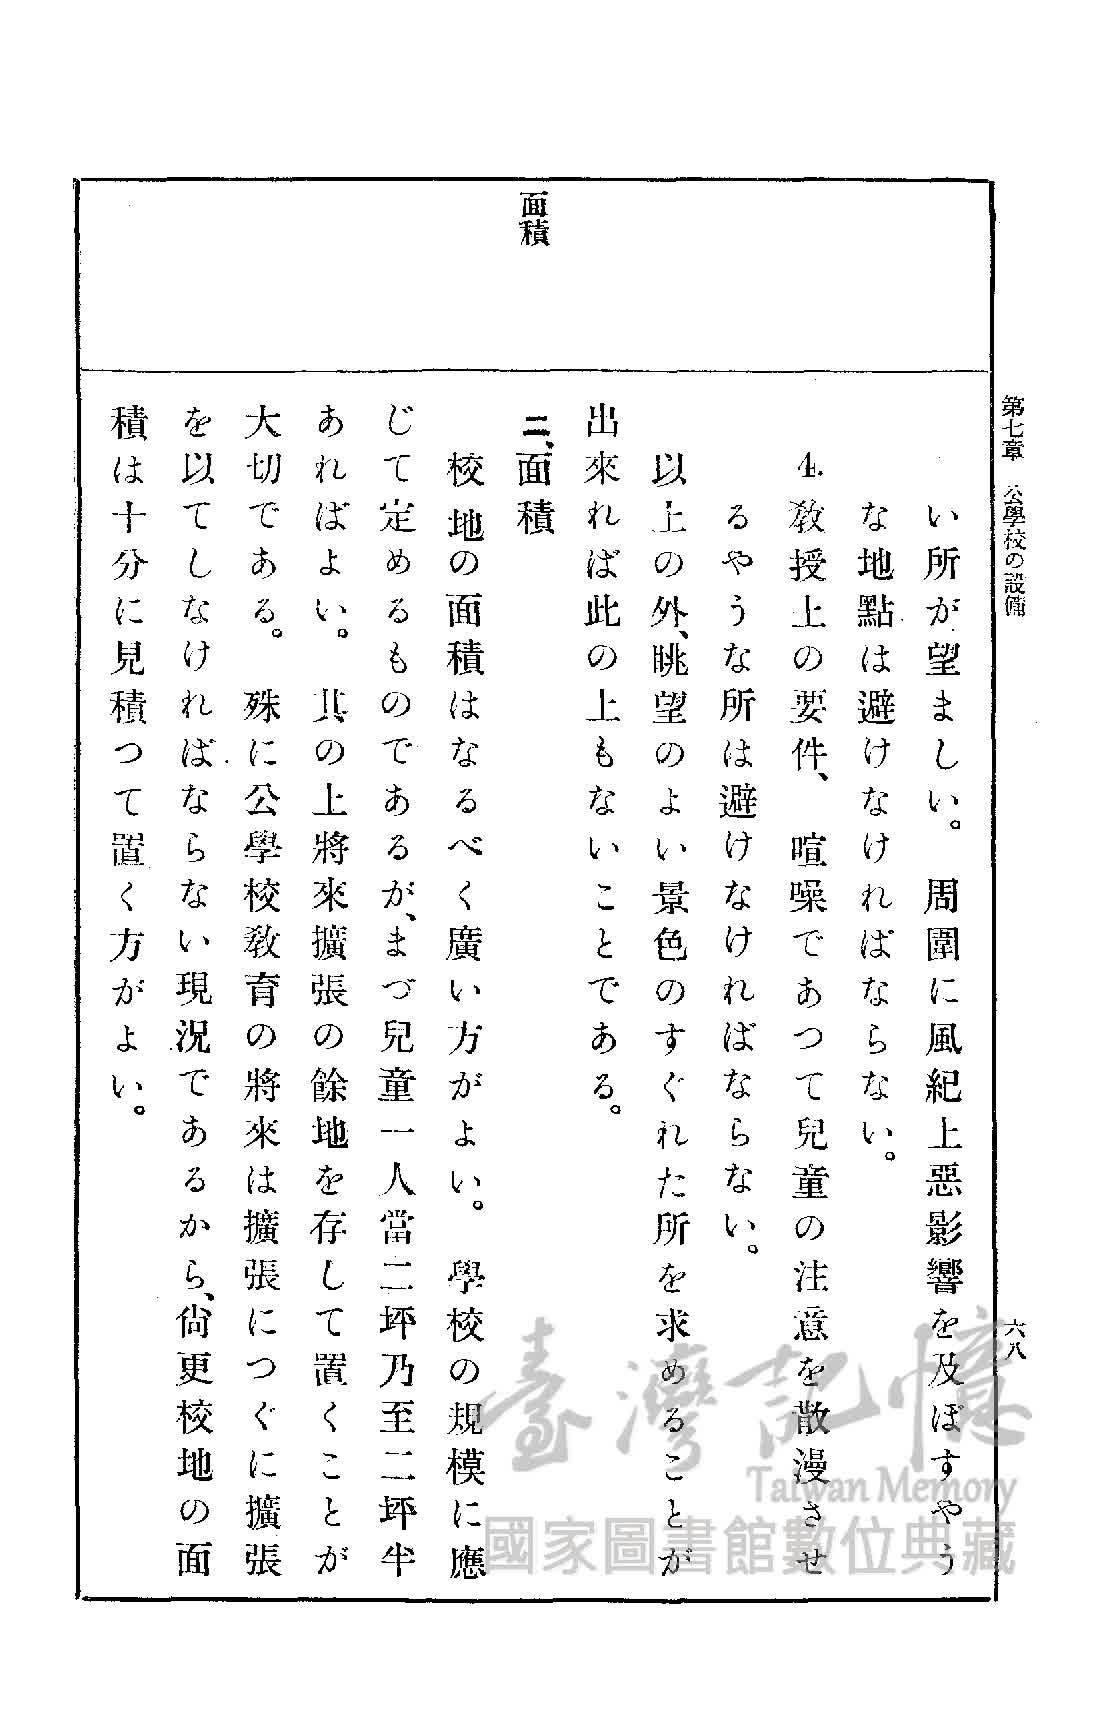 第七章　公學校の設備
六八
面積
い所が望ましい。周圍に風紀上惡影響を及ぼすやう
な地點は避けなければならない。
4.教授上の要件、喧噪であつて兒童の注意を散漫させ
るやうな所は避けなければならない。
以上の外、眺望のよい景色のすぐれた所を求めることが
出來れば此の上もないことである。
二、面積
校地の面積はなるべく廣い方がよい。學校の規模に應
じて定めるものであるが、まづ兒童一人當二坪乃至二坪半
あればよい。其の上將來擴張の餘地を存して置くことが
大切である。殊に公學校敎育の將來は擴張につぐに擴張
を以てしなければならない現況であるから、尙更校地の面
積は十分に見積つて置く方がよい。
臺灣記憶
Taiwan Memory
國家圖書館數位典藏